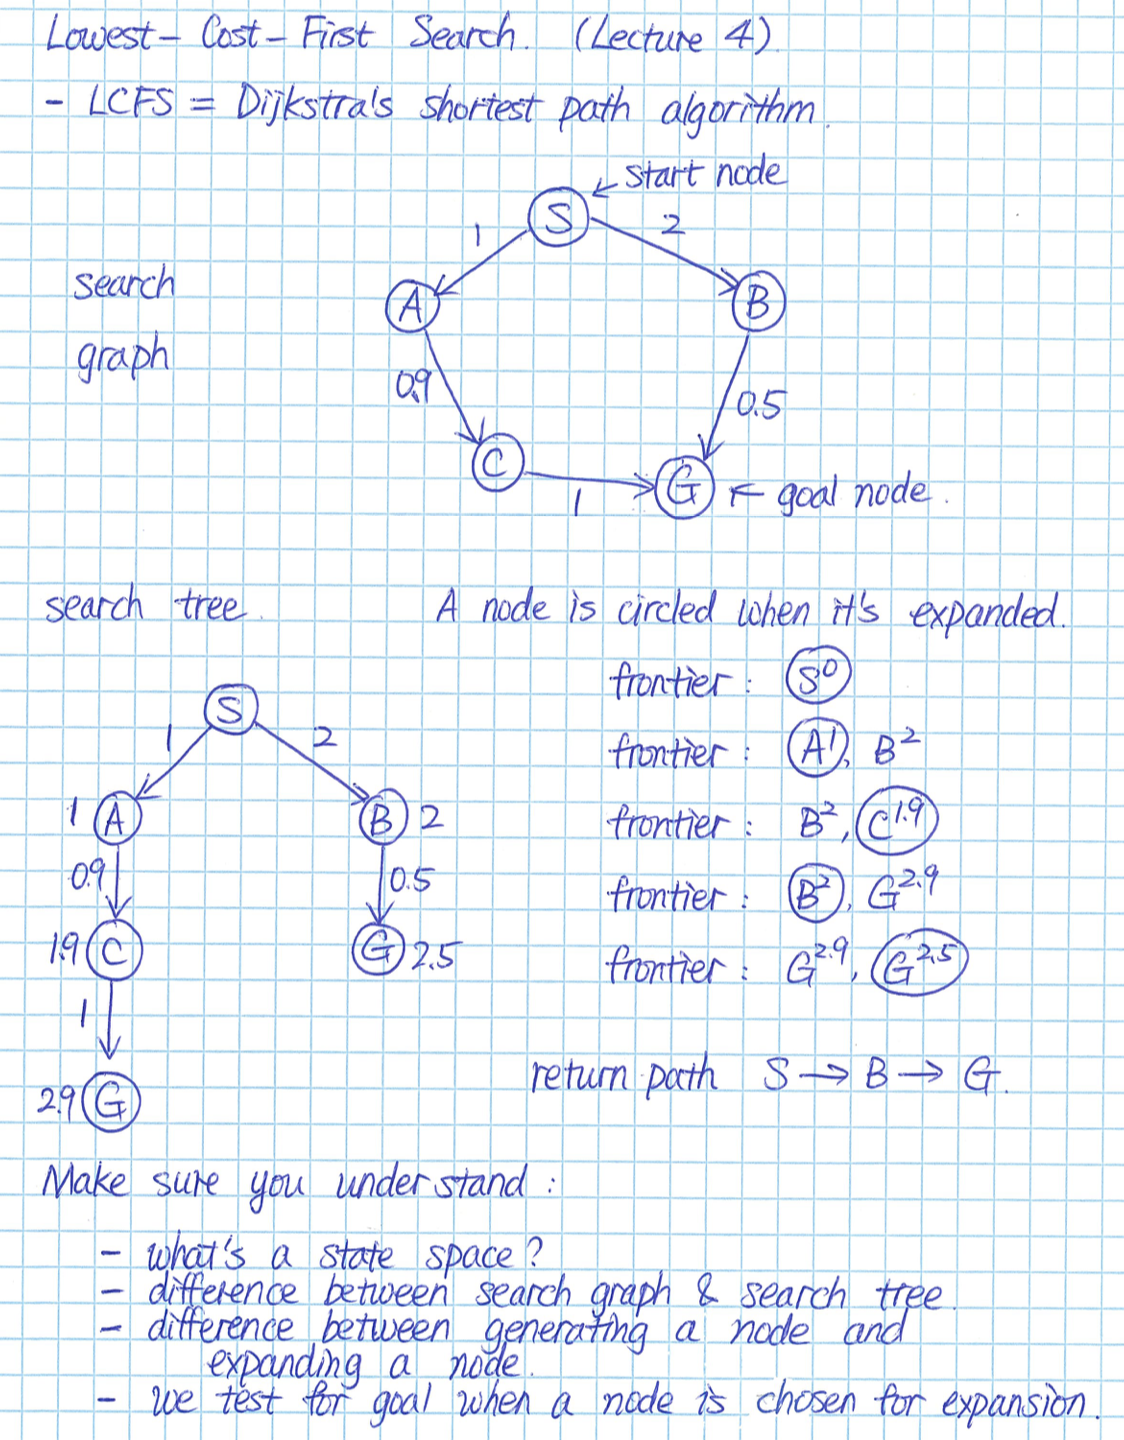 Lowest-Cost-First Search. (Lecture 4)
- LCFS = Dijkstra's shortest path algorithm.
← start node
S
1
2
search
graph
A
B
0.9
0.5
C
G
← goal node.
1
search tree.
A node is circled when it's expanded.
frontier: S⁰
S
1
2
frontier: A¹, B²
1 A
B 2
frontier: B², C¹·⁹
0.9
0.5
frontier: B², G²·⁹
1.9 C
G 2.5
frontier: G²·⁹, G²·⁵
1
2.9 G
return path S → B → G.
Make sure you understand:
- what's a state space?
- difference between search graph & search tree.
- difference between generating a node and
expanding a node.
- we test for goal when a node is chosen for expansion.